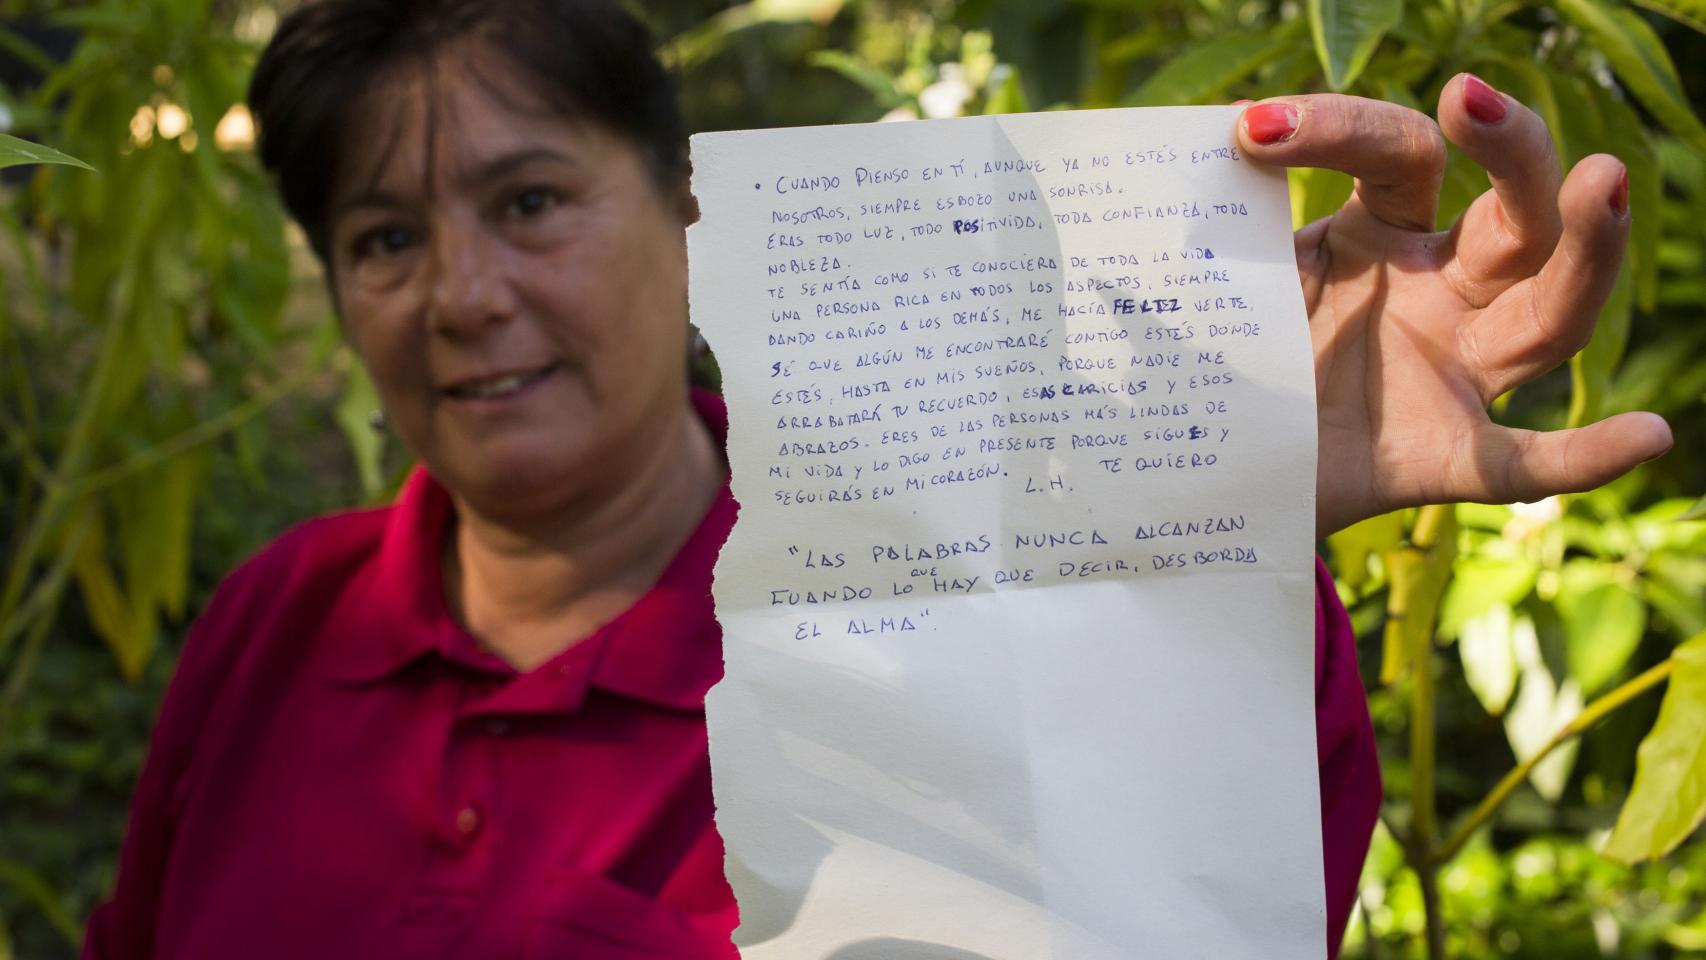 • CUANDO PIENSO EN TÍ, AUNQUE YA NO ESTÉS ENTRE
NOSOTROS, SIEMPRE ESBOZO UNA SONRISA.
ERAS TODO LUZ, TODO POSITIVIDA, TODA CONFIANZA, TODA
NOBLEZA.
TE SENTÍA COMO SI TE CONOCIERA DE TODA LA VIDA
UNA PERSONA RICA EN TODOS LOS ASPECTOS, SIEMPRE
DANDO CARIÑO A LOS DEMÁS, ME HACÍA FELIZ VERTE.
SÉ QUE ALGÚN ME ENCONTRARÉ CONTIGO ESTÉS DONDE
ESTÉS, HASTA EN MIS SUEÑOS, PORQUE NADIE ME
ARRABATARÁ TU RECUERDO, ESAS CARICIAS Y ESOS
ABRAZOS. ERES DE LAS PERSONAS MÁS LINDAS DE
MI VIDA Y LO DIGO EN PRESENTE PORQUE SIGUES Y
SEGUIRÁS EN MI CORAZÓN. TE QUIERO
L.H.
"LAS PALABRAS NUNCA ALCANZAN
CUANDO LO QUE HAY QUE DECIR, DESBORDA
EL ALMA".